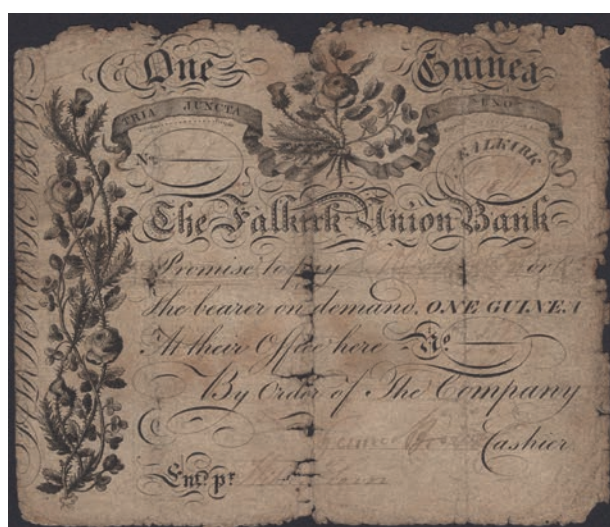 One Guinea
TRIA JUNCTA IN UNO
No
FALKIRK
The Falkirk Union Bank
Promise to pay or
the bearer on demand, ONE GUINEA
At their Office here No
By Order of The Company
Cashier
Entd. pr.